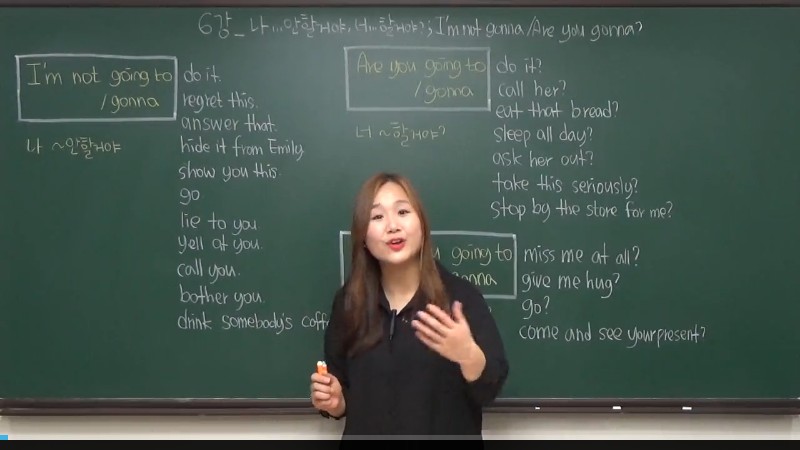 6강_나...안할거야, 너...할거야?; I'm not gonna/Are you gonna?
I'm not going to
/gonna
나 ~안할거야
do it.
regret this.
answer that.
hide it from Emily
show you this.
go
lie to you
yell at you.
call you.
bother you.
drink somebody's coff
Are you going to
/gonna
너 ~할거야?
do it?
call her?
eat that bread?
sleep all day?
ask her out?
take this seriously?
stop by the store for me?
u going to
onna
miss me at all?
give me hug?
go?
come and see your present?